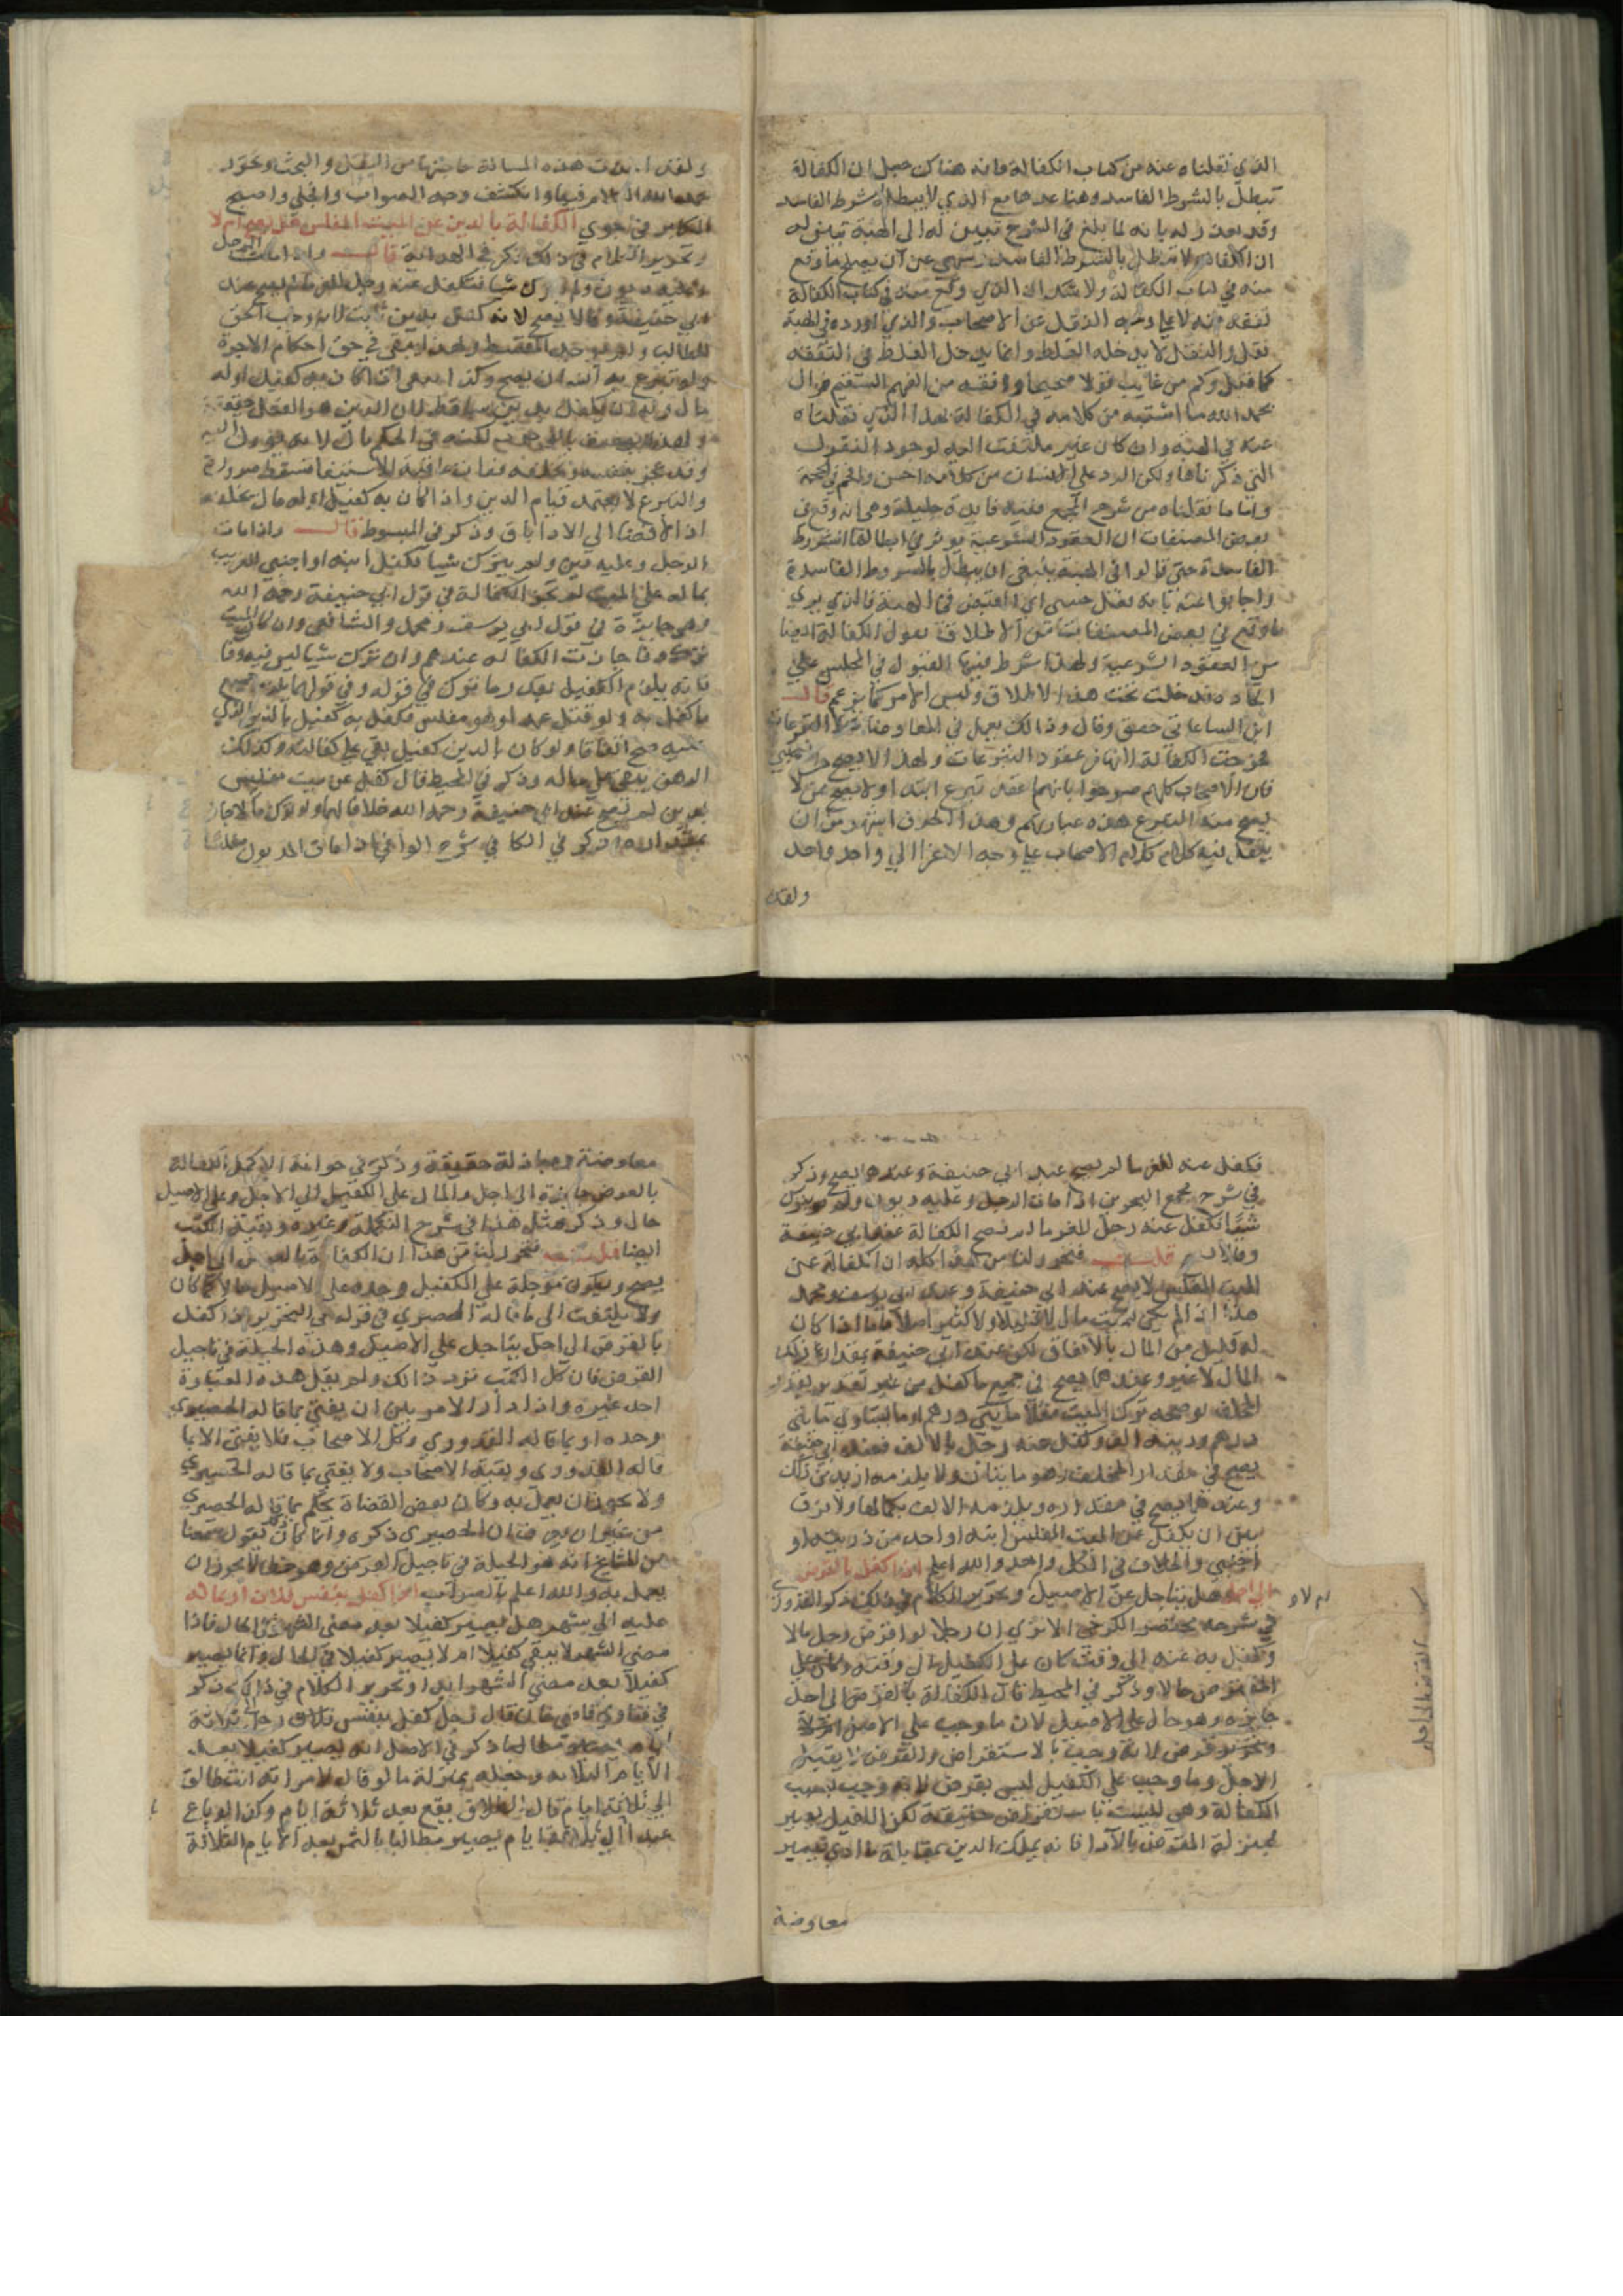 الذي نقلناه عنه من كتاب الكفالة فانه هناك جعل ان الكفالة
تبطل بالشروط الفاسدة وهنا عدها مع الذي لا يبطله شرط الفاسد
وقد بعد له بانه لما بلغ في الشرح تبين له الى الهبة
ان الكفالة لا تبطل بالشرط الفاسد عن ان يصلح ما وقع
منه في كتاب الكفالة ولا شك ان الذي وقع منه في كتاب الكفالة
تفقه منه لا على وجه النقل عن الاصحاب والذي اورده في الهبة
نقل والنقل لا يدخله الغلط وانما يدخل الغلط في التفقه
كما قيل وكم من غايب قولا صحيحا وافته من الفهم السقيم فزال
بحمد الله ما اشتبه من كلامه في الكفالة بهذا الذي نقلناه
عنه في الهبة وان كان غير ملتفت اليه لوجود النقول
التي ذكرناها ولكن الرد على الانسان من كلامه احسن
واما ما نقلناه من شرح المجمع ففيه فايدة جليلة وهي انه وقع في
بعض المصنفات ان العقود الشرعية يؤثر في ابطالها الشروط
الفاسدة حتى قالوا في الهبة ينبغي ان يبطل بالشروط الفاسدة
ما وقع في بعض المصنفات من الاطلاق يقول الكفالة ايضا
من العقود الشرعية ولهذا شرط فيها القبول في المجلس
فدخلت تحت هذا الاطلاق وليس الامر كما يزعم قالـــ
ابن الساعاتي وقال وذلك يعمل في المعاوضات لا التبرعات
فخرجت الكفالة لانها من عقود التبرعات ولهذا لا يصح
فان الاصحاب كلهم صرحوا بانها عقد تبرع ابتداء ولا يصح ممن لا
يصح منه التبرع هذه عبارتهم وهذا الحرف اشهر من ان
ينقل فيه كلام الاصحاب على وجه الاعزا الى واحد واحد
ولقد
ولقد هذه المسالة حاجتها من النقل والبحث
وانكشف وجه الصواب وانجلى
الكفالة بالدين عن الميت المفلس هل تصح ام لا
وتحرير الكلام في ذلك ذكر في الهداية قالـــ واذا مات الرجل
وعليه ديون ولم يترك شيا فتكفل عنه رجل للغرما لم يصح عند
ابي حنيفة وقالا يصح لانه كفل بدين ثابت لانه وجب لحق
الطالب ولم يوجد المسقط ولهذا يبقى في حق احكام الاخرة
ولو تبرع به انسان يصح وكذا يبقى اذا كان به كفيل او له
مال وله انه كفل بدين ساقط لان الدين هو الفعل حقيقة
ولهذا يوصف بالوجوب لكنه في الحكم مال لانه يؤول اليه
وقد عجز بنفسه وبخلفه ففات عاقبة الاستيفا فتسقط ضرورة
والتبرع لا يعتمد قيام الدين واذا كان به كفيل او له مال بخلفه
او الافضا الى الادا باق وذكر في المبسوط قالـــ واذا مات
الرجل وعليه دين ولم يترك شيا فكفل ابنه او اجنبي للغريب
بما له على الميت لم تجز الكفالة في قول ابي حنيفة رحمه الله
وهي جايزة في قول ابي يوسف ومحمد والشافعي وان كان الميت
ترك وفا جازت الكفالة عندهم وان ترك شيا ليس فيه وفا
فانه يلزم الكفيل بقدر ما ترك في قوله وفي قولهما يلزمه جميع
ما كفل به ولو قتل عمدا وهو مفلس فكفل به كفيل بالدين الذي
عليه صح اتفاقا ولو كان بالدين كفيل بقي على كفالته وكذلك
الرهن يبقى على حاله وذكر في المحيط قال كفل عن ميت مفلس
بدين لم تصح عند ابي حنيفة رحمه الله خلافا لهما ولو ترك مالا جاز
بقدره ذكر في الكافي شرح الوافي اذا مات المديون مفلسا
فكفل عنه للغرما لم يصح عند ابي حنيفة وعندهما يصح وذكر
في شرح مجمع البحرين اذا مات الرجل وعليه ديون ولم يترك
شيا فكفل عنه رجل للغرما لم تصح الكفالة عند ابي حنيفة
وقالا قلـــت فتحرر لنا من هذا كله ان الكفالة عن
الميت المفلس لا يصح عند ابي حنيفة وعند ابي يوسف ومحمد
هذا اذا لم يكن للميت مال لا قليلا ولا كثيرا اصلا فاما اذا كان
له قليل من المال بالاتفاق لكن عند ابي حنيفة بمقدار ذلك
المال لا غير وعندهما يصح في جميع ما كفل من غير تقدير بقدر
المخلف توضحه ترك الميت مثلا مايتي درهم او ما يساوي مايتي
درهم ودينه الف وكفل عنه رجل بالالف فعند ابي حنيفة
يصح في مقدار المخلف وهو مايتان ولا يلزمه ازيد من ذلك
وعندهما يصح في مقداره ويلزمه الالف بكمالها ولا فرق
بين ان يكفل عن الميت المفلس ابنه او احد من ذريته او
اجنبي والخلاف في الكل واحد والله اعلم اذا كفل بالقرض
الى اجل هل يتاجل عن الاصيل ام لا وتحرير الكلام في ذلك ذكر القدوري
في شرحه مختصر الكرخي الا ترى ان رجلا لو اقرض رجلا مالا
وكفل به عنه الى وقت كان على الكفيل الى وقته وكان على
المقترض حالا وذكر في المحيط قال الكفالة بالقرض الى اجل
جايزة وهو حال على الاصيل لان ما وجب على الاصيل
قرض لانه وجب بالاستقراض والقرض لا يقبل
الاجل وما وجب على الكفيل ليس بقرض لانه وجب بسبب
الكفالة وهي ليست باستقراض حقيقة لكن الكفيل يصير
بمنزلة المقرض بالادا فانه يملك الدين بمقابلة ما ادى فيصير
معاوضة
القرض الى اجل
معاوضة ومبادلة حقيقة وذكر في خزانة الاكمل الكفالة
بالقرض جايزة الى اجل والمال على الكفيل الى الاجل وعلى الاصيل
حال وذكر مثل هذا في شرح التكملة وغيره وبقية الكتب
ايضا قلـــت فتحرر لنا من هذا ان الكفالة بالقرض الى اجل
يصح ويكون مؤجلة على الكفيل وحده وعلى الاصيل حالا كما كان
ولا يلتفت الى ما قاله الحصيري في قوله في التحرير اذا كفل
بالقرض الى اجل يتاجل على الاصيل وهذه الحيلة في تاجيل
القرض فان كل الكتب ترد ذالك ولم يقل هذه العبارة
احد غيره واذا دار الامر بين ان يفتى بما قاله الحصيري
وحده او بما قاله القدوري وكل الاصحاب فلا يفتى الا بما
قاله القدوري وبقية الاصحاب ولا يفتى بما قاله الحصيري
ولا يجوز ان يعمل به وكان بعض القضاة يحكم بما قاله الحصيري
من غير ان الحصيري ذكره وانما كان يقول سمعنا
من المشايخ انه هو الحيلة في تاجيل القرض وهو خطا لا يجوز ان
يعمل به والله اعلم بالصواب اذا كفل بنفس فلان او بماله
عليه الى شهر هل يصير كفيلا بعد مضي الشهر او في الحال فاذا
مضى الشهر لا يبقى كفيلا ام لا يصير كفيلا في الحال وانما يصير
كفيلا بعد مضي الشهر ابدا وتحرير الكلام في ذالك ذكر
في فتاوى قاضي خان قال رجل كفل بنفس رجل الى ثلاثة
ايام ذكر في الاصل انه يصير كفيلا بعد
الايام الثلاثة وجعله بمنزلة ما لو قال لامراته انت طالق
الى ثلاثة ايام قال الطلاق يقع بعد ثلاثة ايام وكذا لو باع
عبدا الى ثلاثة ايام يصير مطالبا بالثمن بعد الايام الثلاثة